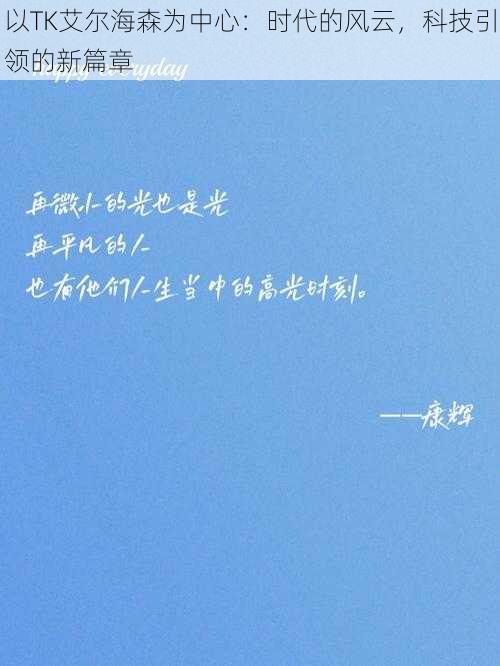 以TK艾尔海森为中心：时代的风云，科技引
领的新篇章
happy everyday
再微小的光也是光
再平凡的人
也有他们人生当中的高光时刻。
——康辉